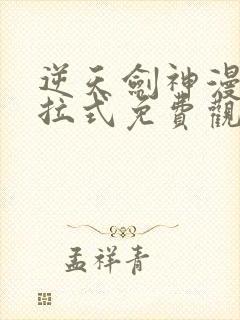 逆天劍神漫
拉式免費觀
孟祥青